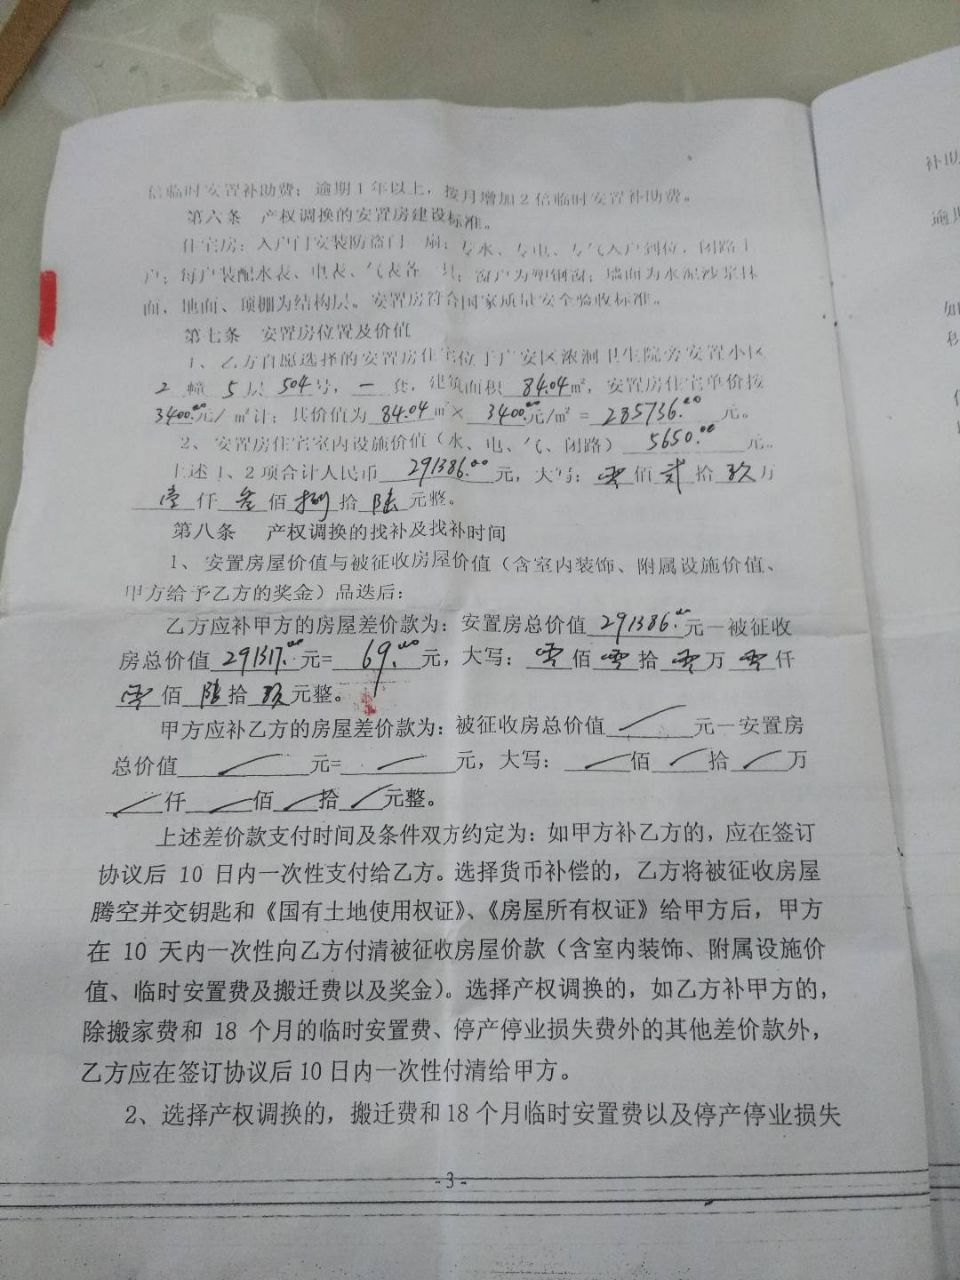 倍临时安置补助费；逾期1年以上，按月增加2倍临时安置补助费。
第六条 产权调换的安置房建设标准。
住宅房：入户门安装防盗门一扇；专水、专电、专气入户到位，闭路上
户；每户装配水表、电表、气表各一只；窗户为塑钢窗；墙面为水泥沙浆抹
面，地面、顶棚为结构层。安置房符合国家质量安全验收标准。
第七条 安置房位置及价值
1、乙方自愿选择的安置房住宅位于广安区浓洄卫生院旁安置小区
2 幢 5 层 504 号，一 套，建筑面积 84.04 ㎡，安置房住宅单价按
3400.00元/㎡计；其价值为 84.04 ㎡× 3400.00元/㎡ = 285736.00 元。
2、安置房住宅室内设施价值（水、电、气、闭路） 5650.00 元。
上述1、2项合计人民币 291386.00 元，大写：零 佰 贰 拾 玖 万
壹 仟 叁 佰 捌 拾 陆 元整。
第八条 产权调换的找补及找补时间
1、安置房屋价值与被征收房屋价值（含室内装饰、附属设施价值、
甲方给予乙方的奖金）品迭后：
乙方应补甲方的房屋差价款为：安置房总价值 291386.00 元－被征收
房总价值 291317.00 元= 69.00 元，大写：零 佰 零 拾 零 万 零 仟
零 佰 陆 拾 玖 元整。
甲方应补乙方的房屋差价款为：被征收房总价值 元－安置房
总价值 元= 元，大写： 佰 拾 万
仟 佰 拾 元整。
上述差价款支付时间及条件双方约定为：如甲方补乙方的，应在签订
协议后 10 日内一次性支付给乙方。选择货币补偿的，乙方将被征收房屋
腾空并交钥匙和《国有土地使用权证》、《房屋所有权证》给甲方后，甲方
在 10 天内一次性向乙方付清被征收房屋价款（含室内装饰、附属设施价
值、临时安置费及搬迁费以及奖金）。选择产权调换的，如乙方补甲方的，
除搬家费和 18 个月的临时安置费、停产停业损失费外的其他差价款外，
乙方应在签订协议后 10 日内一次性付清给甲方。
2、选择产权调换的，搬迁费和 18 个月临时安置费以及停产停业损失
- 3 -
补助
逾期
如